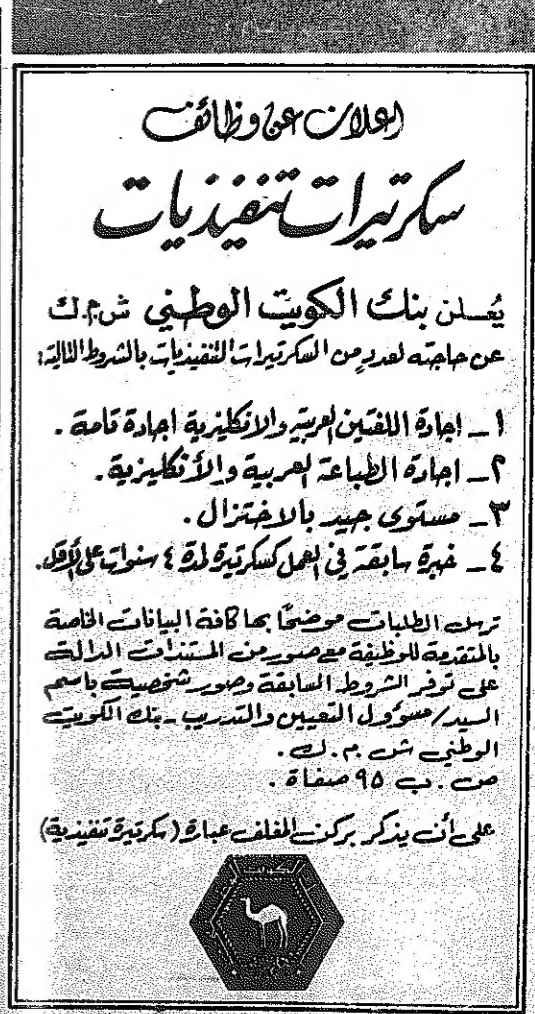 اعلان عن وظائف
سكرتيرات تنفيذيات
يُعلن بنك الكويت الوطني ش.م.ك
عن حاجته لعددٍ من السكرتيرات التنفيذيات بالشروط التالية:
١ـ اجادة اللغتين العربية والانكليزية اجادة تامة .
٢ـ اجادة الطباعة العربية والأنكليزية .
٣ـ مستوى جيد بالاختزال .
٤ـ خبرة سابقة في العمل كسكرتيرة لمدة ٤ سنوات على الأقل.
ترسل الطلبات موضحًا بها كافة البيانات الخاصة
بالمتقدمة للوظيفة مع صور من المستندات الدالة
على توفر الشروط السابقة وصور شخصية باسم
السيد/مسؤول التعيين والتدريب ـ بنك الكويت
الوطني ش . م . ك .
ص . ب ٩٥ صفاة .
على أن يذكر بركن المغلف عبارة (سكرتيرة تنفيذية)